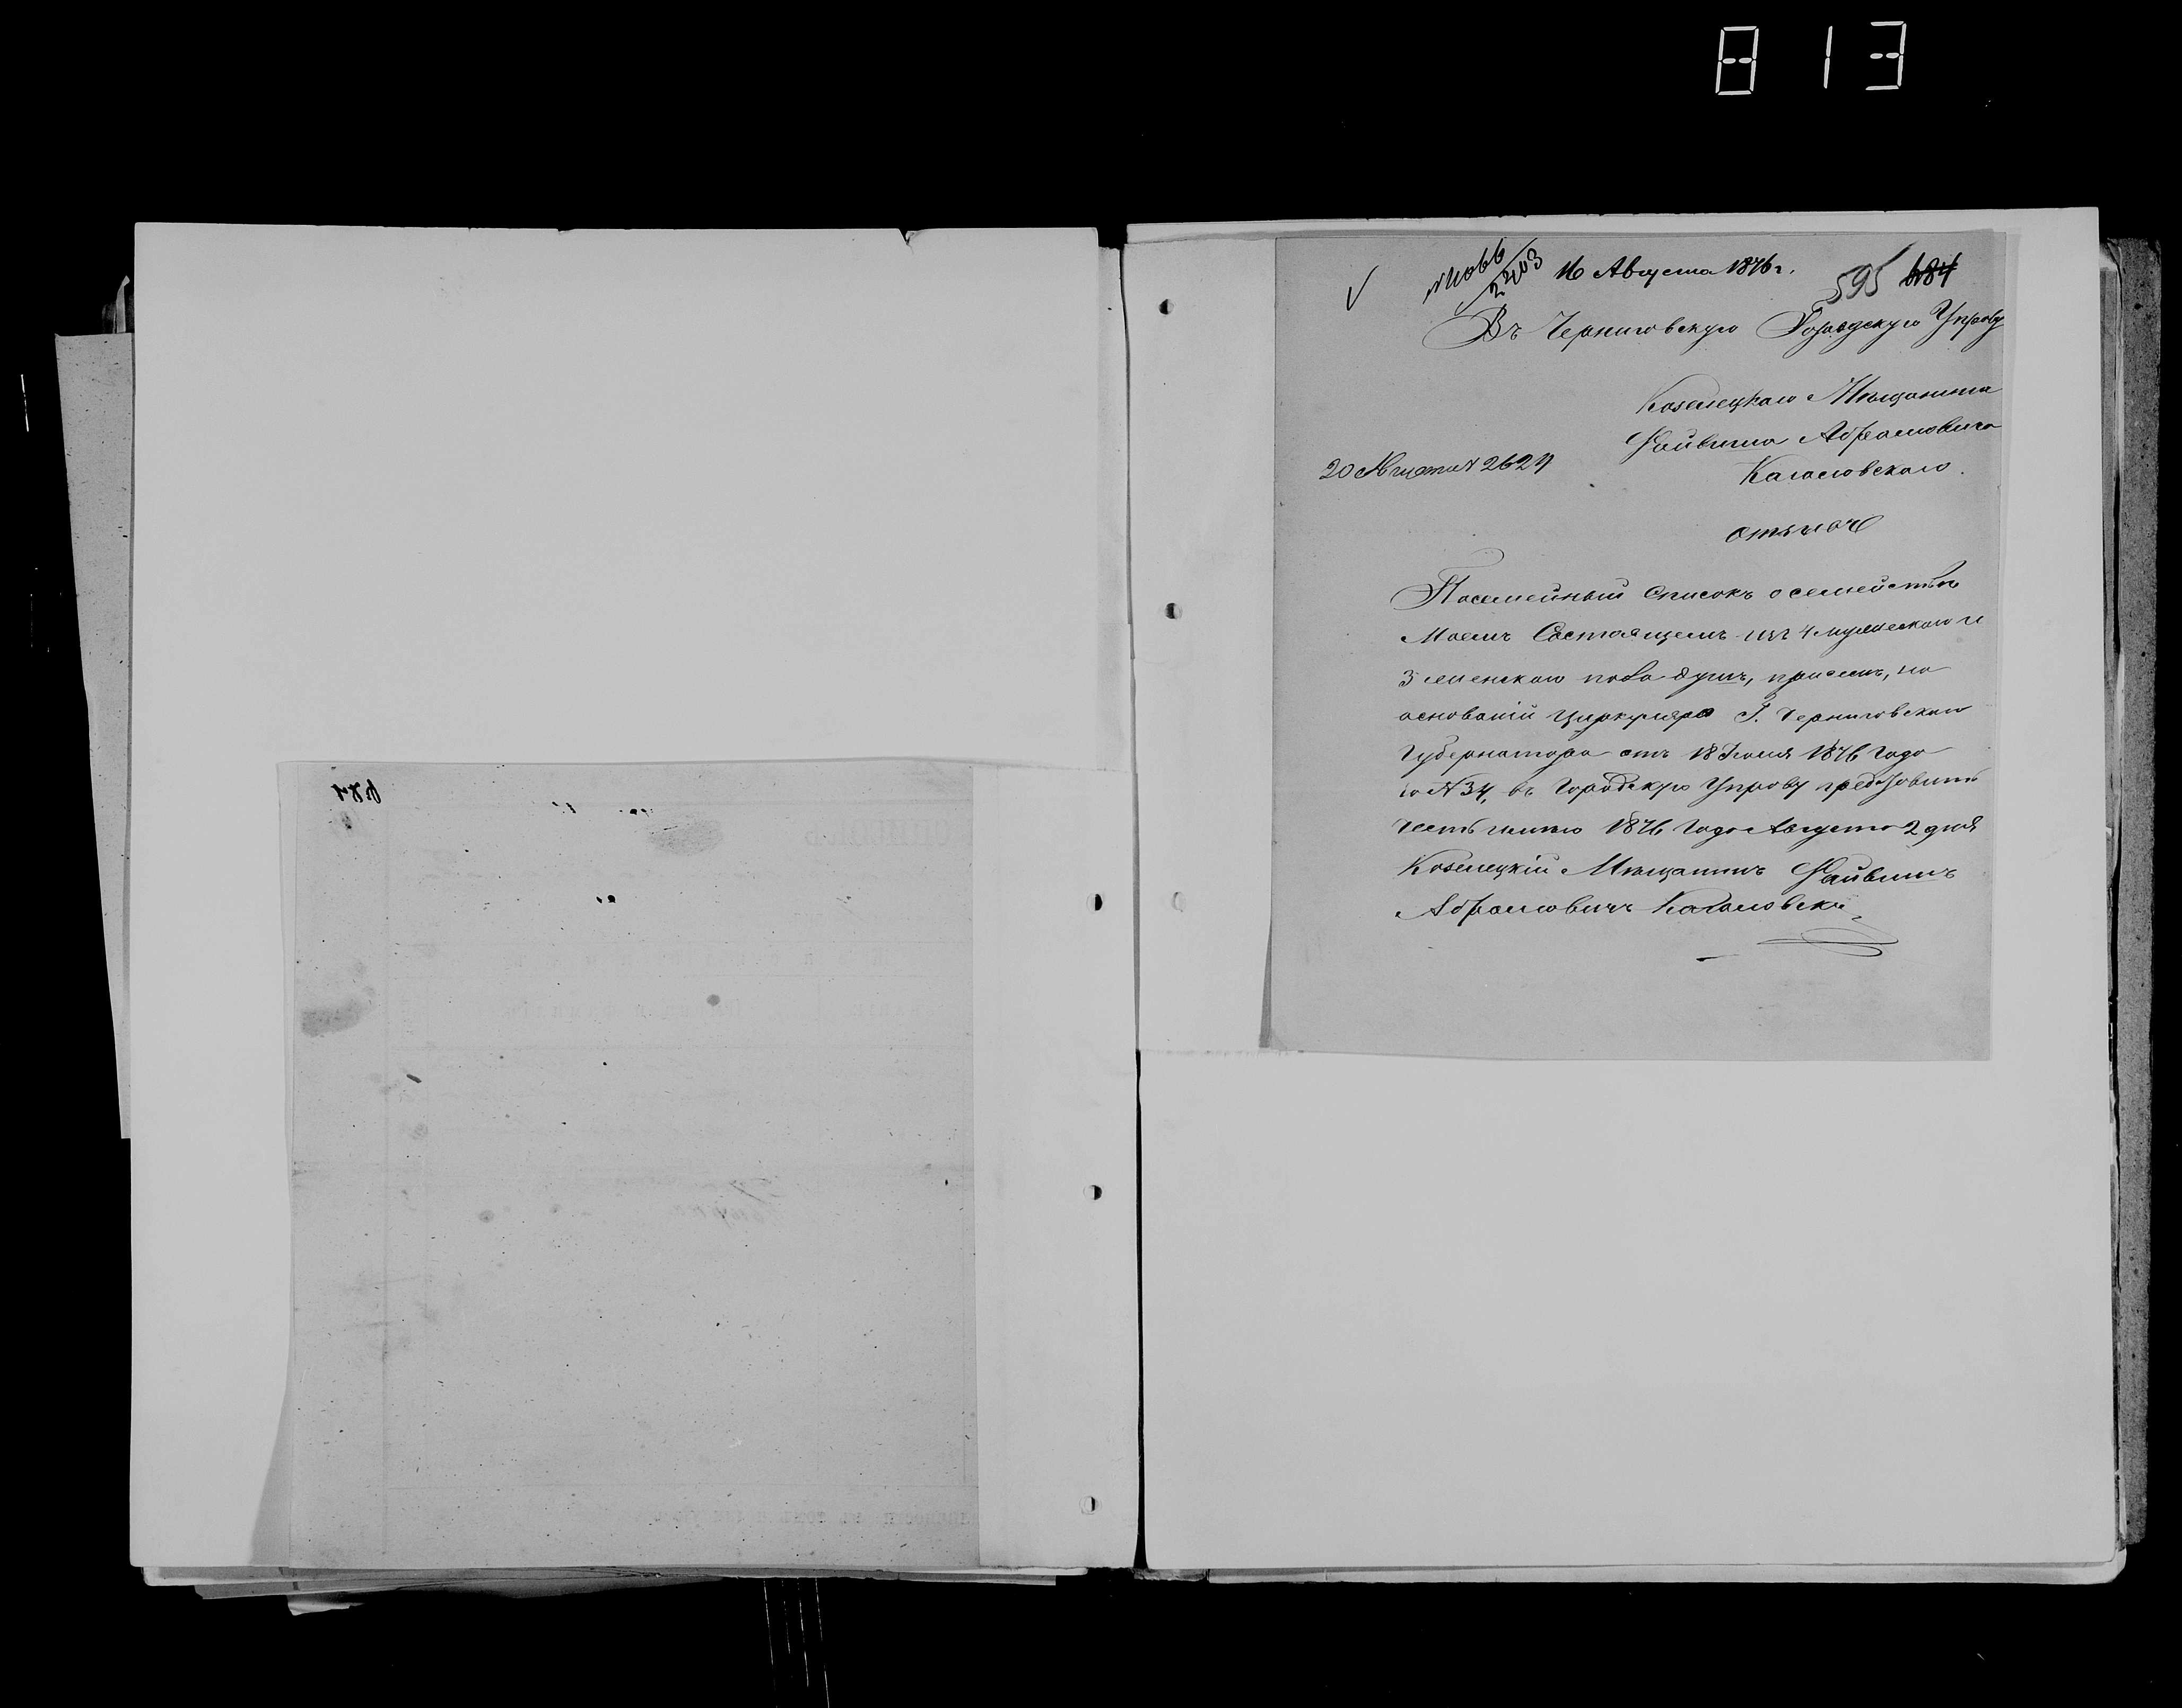 813
16 Августа 1876 г.
595 684
Въ Черниговскую Городскую Управу
Козелецкаго Мѣщанина
Файвиша Абрамовича
Кагановскаго.
20 Августа № 2624
Посемейный Списокъ о семействѣ
Моемъ Состоящемъ изъ 4 мужескаго и
3 женскаго пола душъ, при семъ, на
основаніи циркуляра Г. Черниговскаго
Губернатора отъ 18 Іюля 1876 Года
за № 34, въ Городскую Управу представить
честь имѣю 1876 Года Августа 2 дня
Козелецкій Мѣщанинъ Файвишъ
Абрамовичъ
684